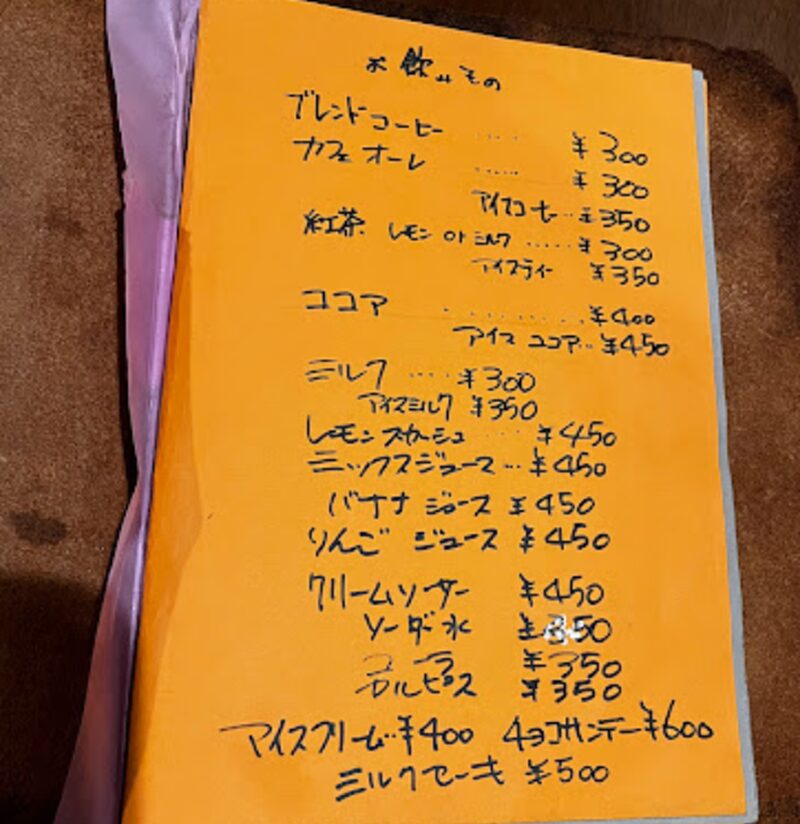 お飲みもの
ブレンドコーヒー ..... ¥300
カフェオーレ ..... ¥300
アイスコーヒー... ¥350
紅茶 レモン or ミルク ..... ¥300
アイスティー ¥350
ココア ......... ¥400
アイスココア... ¥450
ミルク .... ¥300
アイスミルク ¥350
レモンスカッシュ .... ¥450
ミックスジュース... ¥450
バナナジュース ¥450
りんごジュース ¥450
クリームソーダー ¥450
ソーダー水 ¥350
コーラ ¥350
カルピス ¥350
アイスクリーム..¥400 チョコサンデー ¥600
ミルクセーキ ¥500